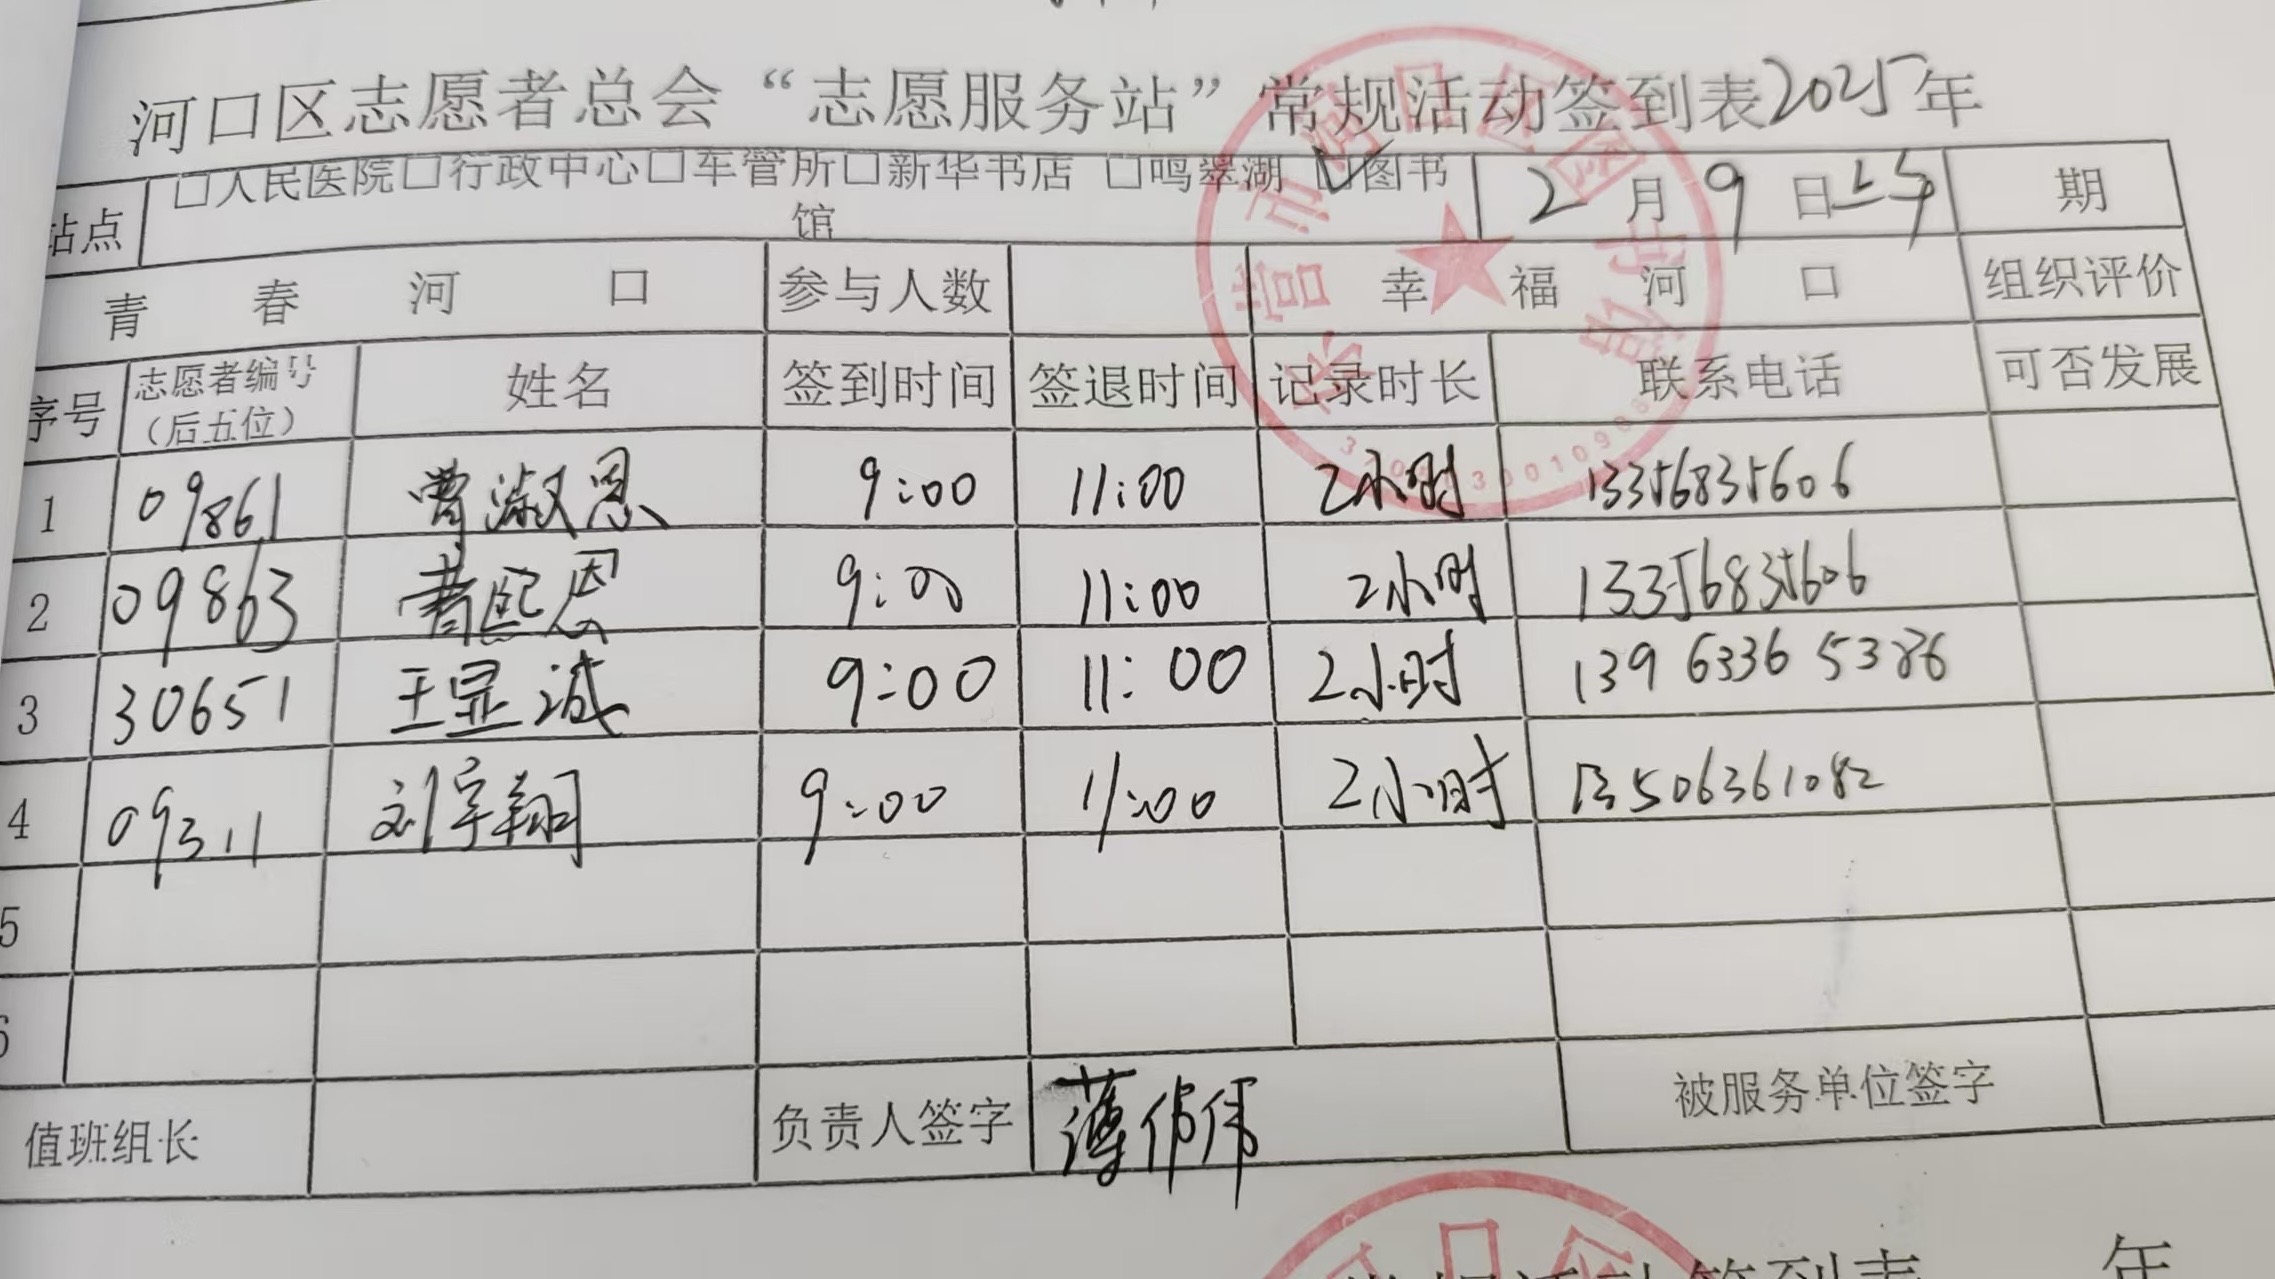 河口区志愿者总会“志愿服务站”常规活动签到表2025年
站点 □人民医院□行政中心□车管所□新华书店 □鸣翠湖 ☑图书馆 2月9日上午 期
青春河口 参与人数 幸福河口 组织评价
序号 志愿者编号（后五位） 姓名 签到时间 签退时间 记录时长 联系电话 可否发展
1 09861 曹淑恩 9:00 11:00 2小时 13356835606
2 09863 曹熙恩 9:00 11:00 2小时 13356835606
3 30651 王显诚 9:00 11:00 2小时 139 6336 5386
4 09311 刘宇翔 9:00 11:00 2小时 13506361082
5
6
值班组长 负责人签字 薄伟伟 被服务单位签字
东营市河口区图书馆
常规活动签到表 年